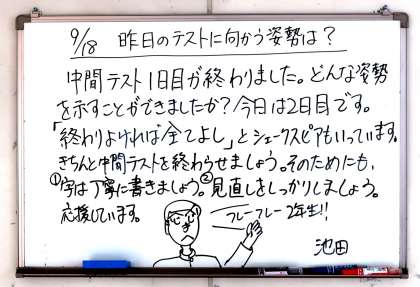 9/18 昨日のテストに向かう姿勢は？
中間テスト1日目が終わりました。どんな姿勢
を示すことができましたか？今日は2日目です。
「終わりよければ全てよし」とシェークスピアもいっています。
きちんと中間テストを終わらせましょう。そのためにも、
①字は丁寧に書きましょう。②見直しをしっかりしましょう。
応援しています。
フレーフレー2年生!!
池田